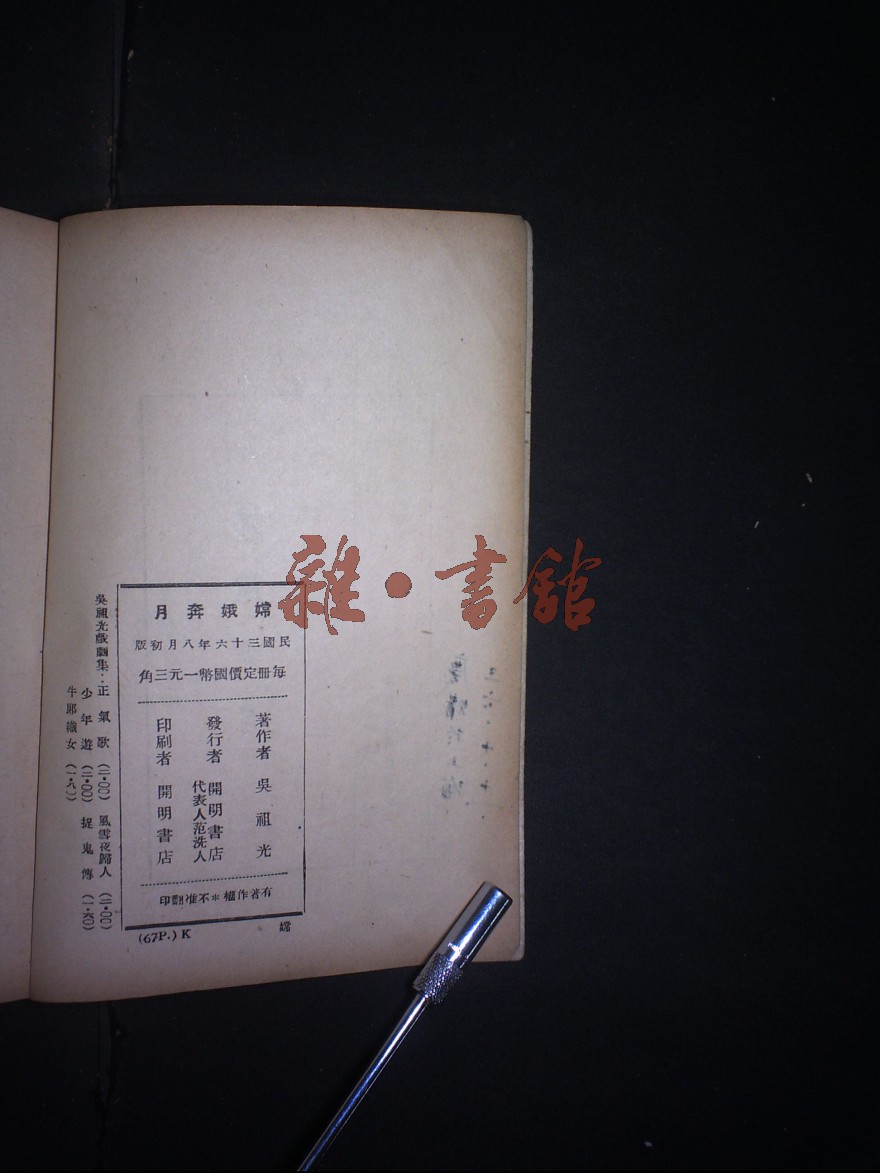 雜·書館
嫦娥奔月
民國三十六年八月初版
每冊定價國幣一元三角
著作者 吳祖光
發行者 開明書店
代表人范洗人
印刷者 開明書店
有著作權＊不准翻印
嫦
(67P.) K
吳祖光戲劇集：正氣歌（二·〇〇） 風雪夜歸人（二·〇〇）
少年遊（二·〇〇） 捉鬼傳（一·六〇）
牛郎織女（一·八）
三六·十·十